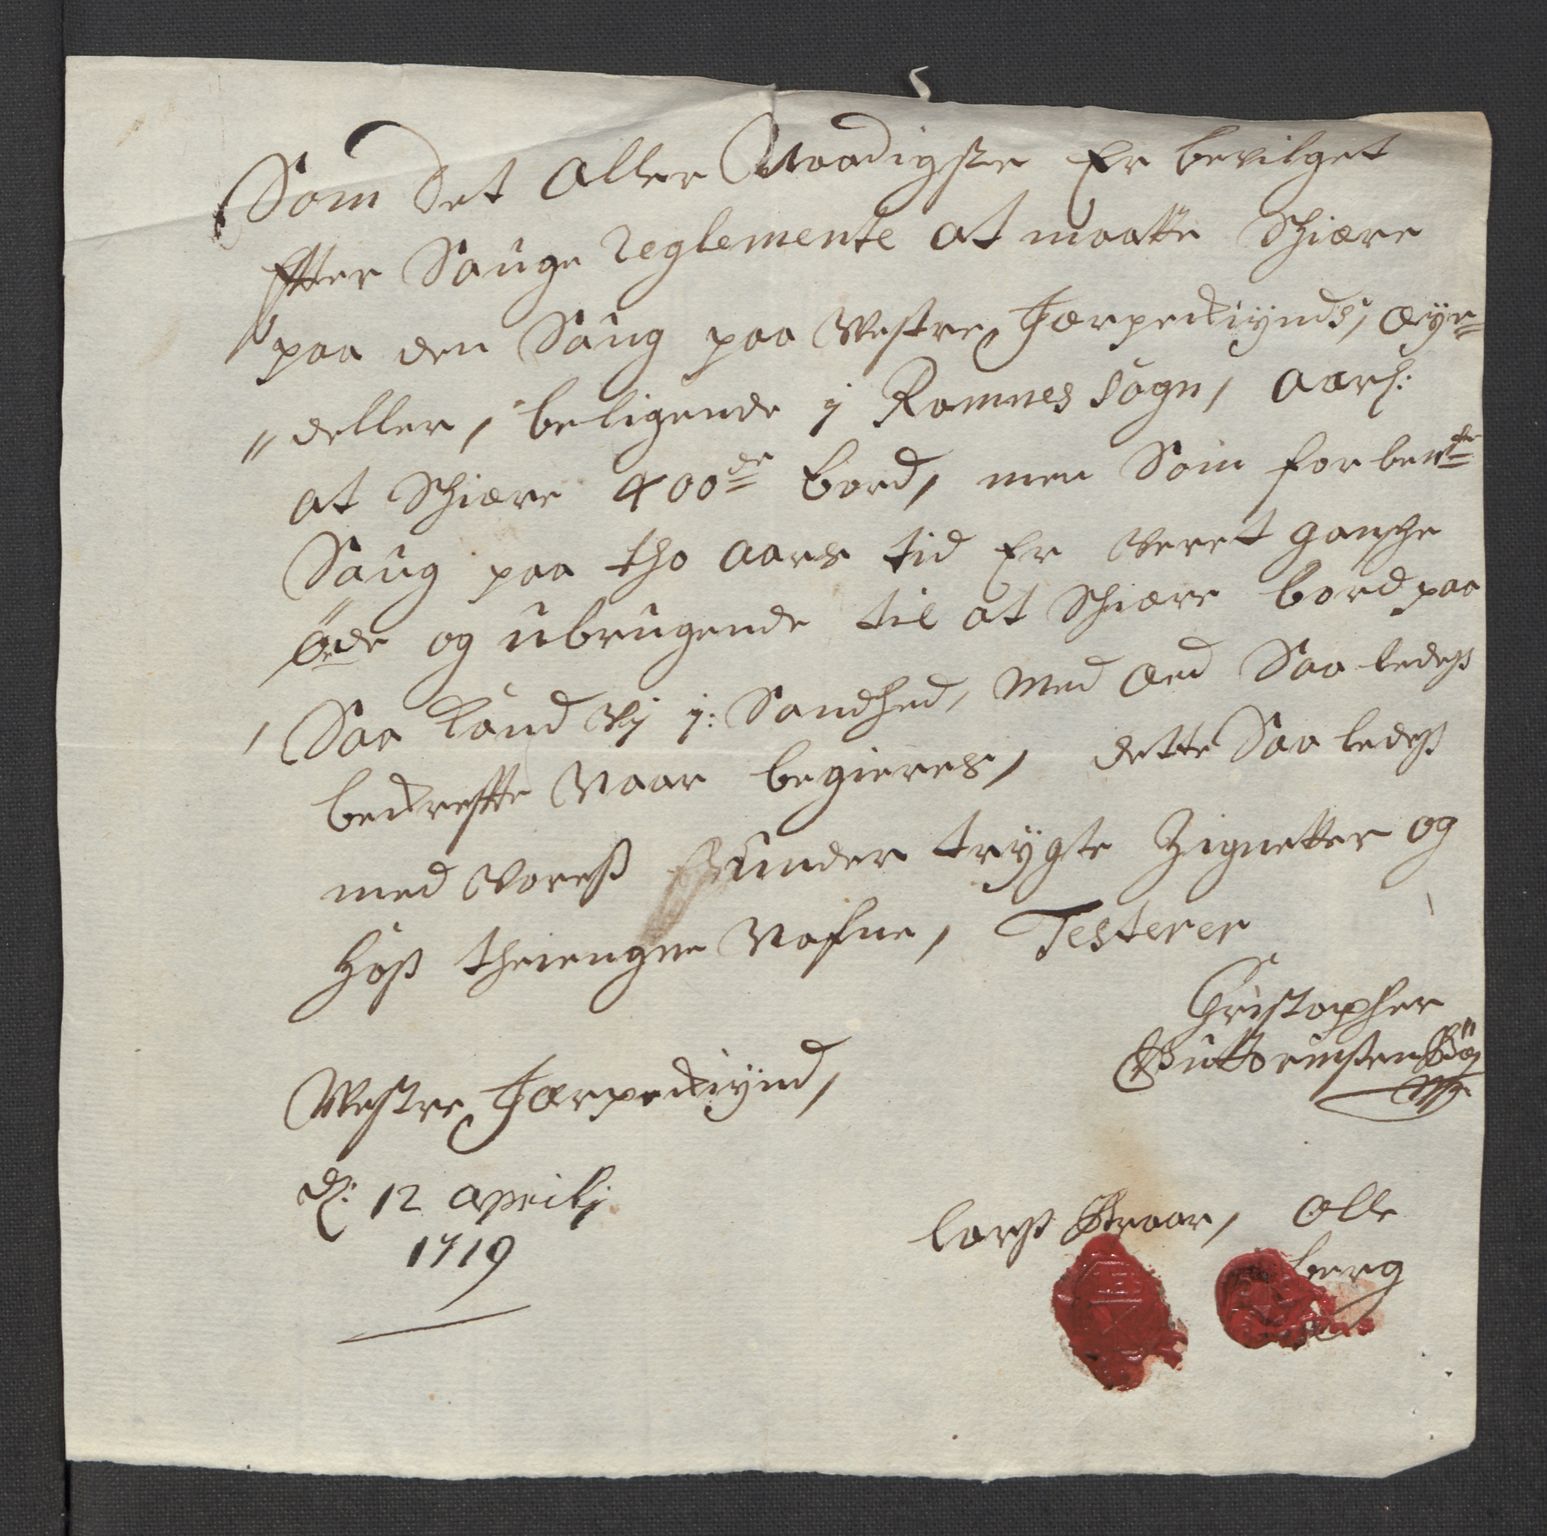 Som det Aller Naadigste Er bevilget
Efter Sauge Reglemente at maatte Schiære
paa den Saug paa Westre Jærpekiynds, æye-
deller, beligende j Ramnes Sogn, aarl:
at Schiære 400de bord, men Som forbente
Saug paa tho aars tid Er veret gansche
øde og ubrugende til at Schiære bord paa
Saa kand vj j: Sandhed, Med æed Saa ledeß
bekreffte Naar begieres, dette Saa ledeß
med Voreß under trygte Zignetter og
Høß theiengne Nafne, Testerer
Christopher
Guttormsen Bøe
Westre Jærpekiynd,
d: 12 aprilj
1719
Larß Braar, Olle
berg